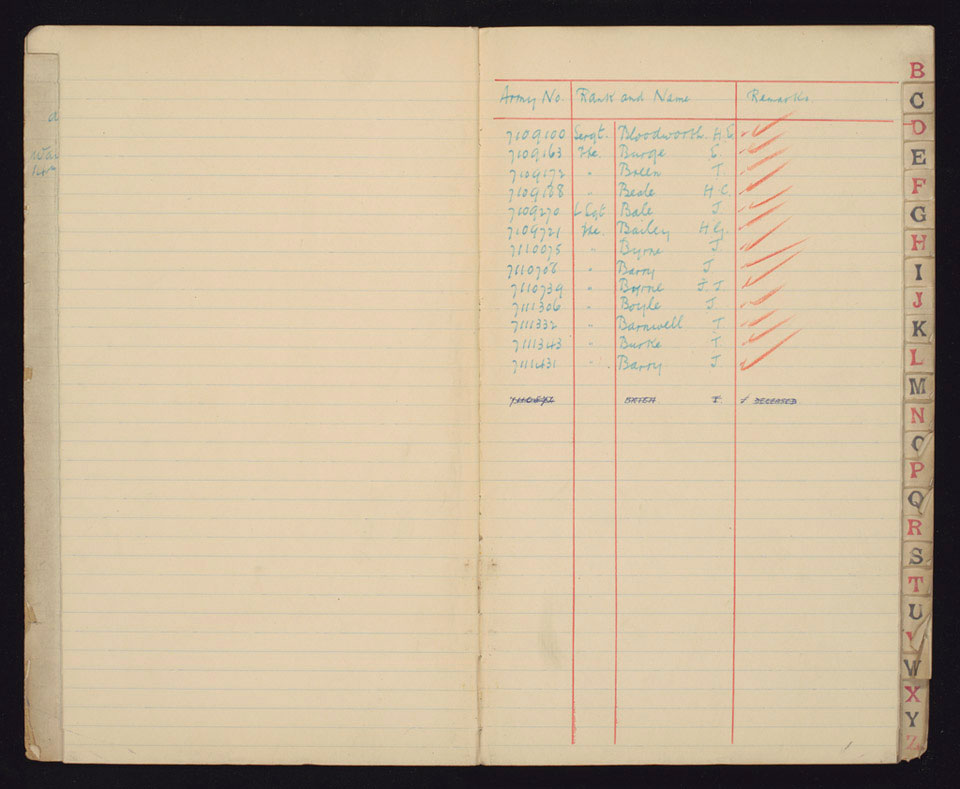 Army No. Rank and Name Remarks
7109100 Sergt. Bloodworth. H.E.
7109163 Fte. Burge E.
7109172 " Breen T.
7109188 " Beale H.C.
7109270 L Sgt Bale J.
7109721 Fte. Bailey H.G.
7110075 " Byrne J.
7110706 " Barry J.
7110739 " Byrne J.J.
7111306 " Boyle J.
7111332 " Barnwell T.
7111343 " Burke T.
7111431 " Barry J.
J. DECEASED
B
C
D
E
F
G
H
I
J
K
L
M
N
O
P
Q
R
S
T
U
V
W
X
Y
Z